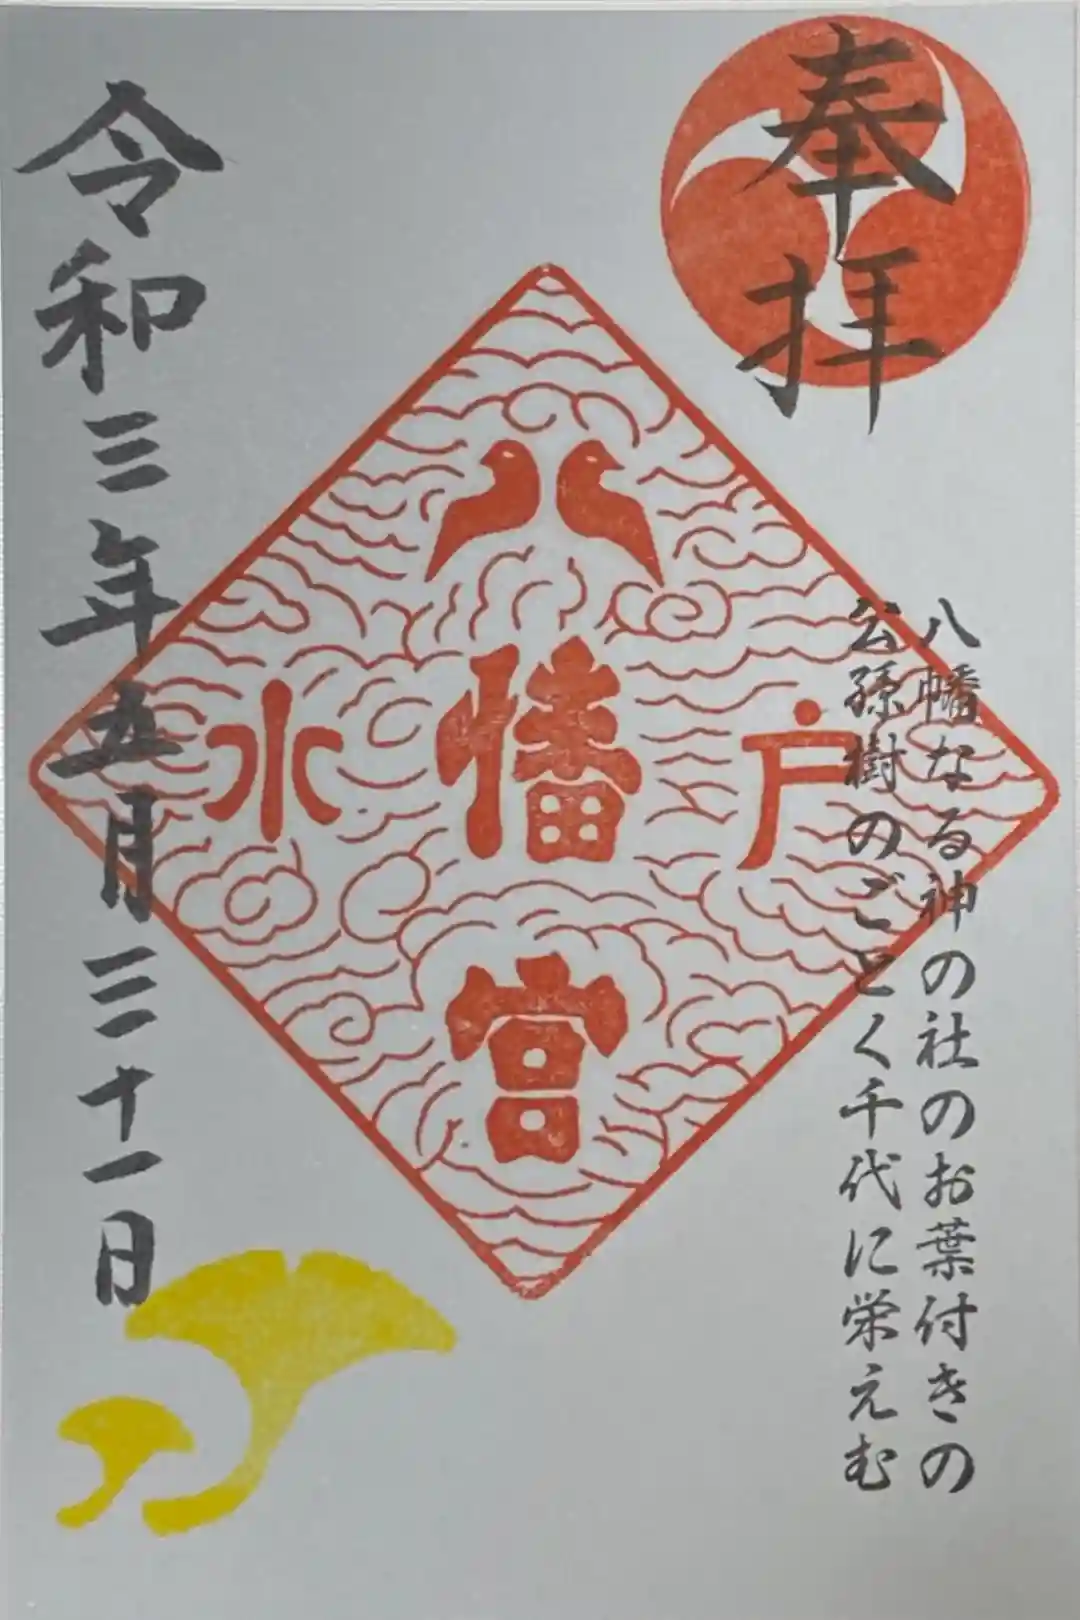 奉拝
八幡なる神の社のお葉付きの
公孫樹のごとく千代に栄えむ
八幡宮
水戸
令和三年五月三十一日